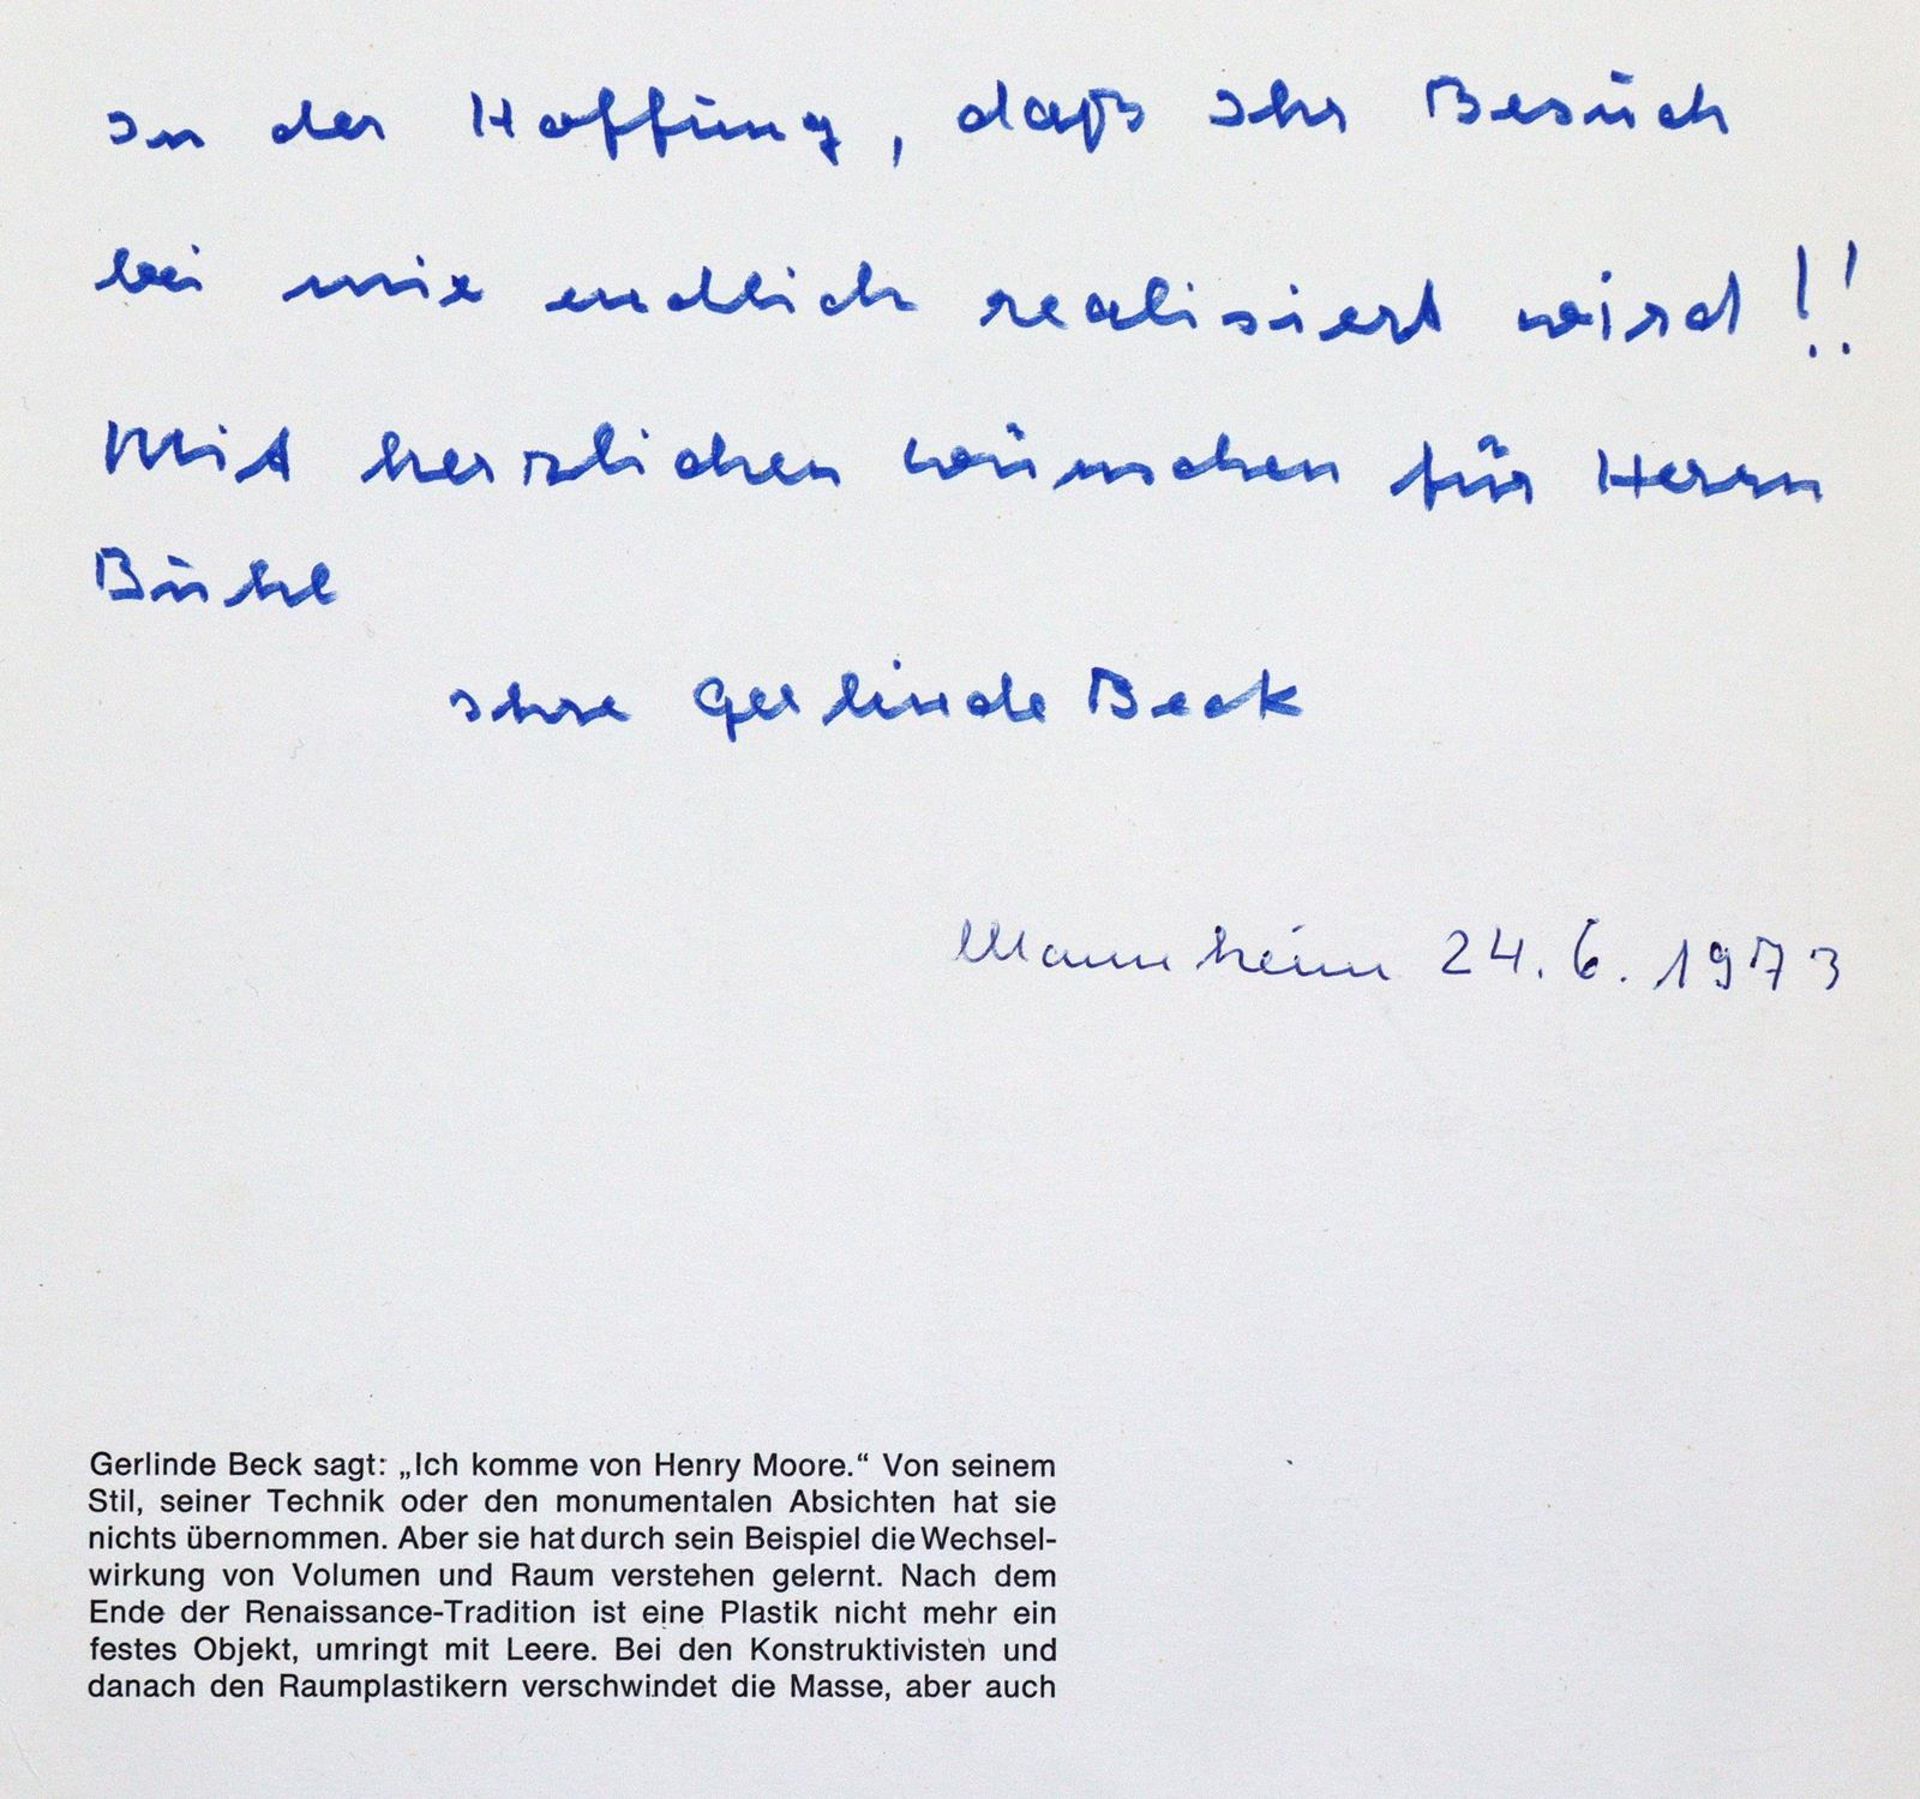 In der Hoffung, daß Ihr Besuch
bei mir endlich realisiert wird!!
Mit herzlichen wünschen für Herrn
Bühl
Ihre Gerlinde Beck
Mannheim 24.6.1973
Gerlinde Beck sagt: „Ich komme von Henry Moore.“ Von seinem
Stil, seiner Technik oder den monumentalen Absichten hat sie
nichts übernommen. Aber sie hat durch sein Beispiel die Wechsel-
wirkung von Volumen und Raum verstehen gelernt. Nach dem
Ende der Renaissance-Tradition ist eine Plastik nicht mehr ein
festes Objekt, umringt mit Leere. Bei den Konstruktivisten und
danach den Raumplastikern verschwindet die Masse, aber auch